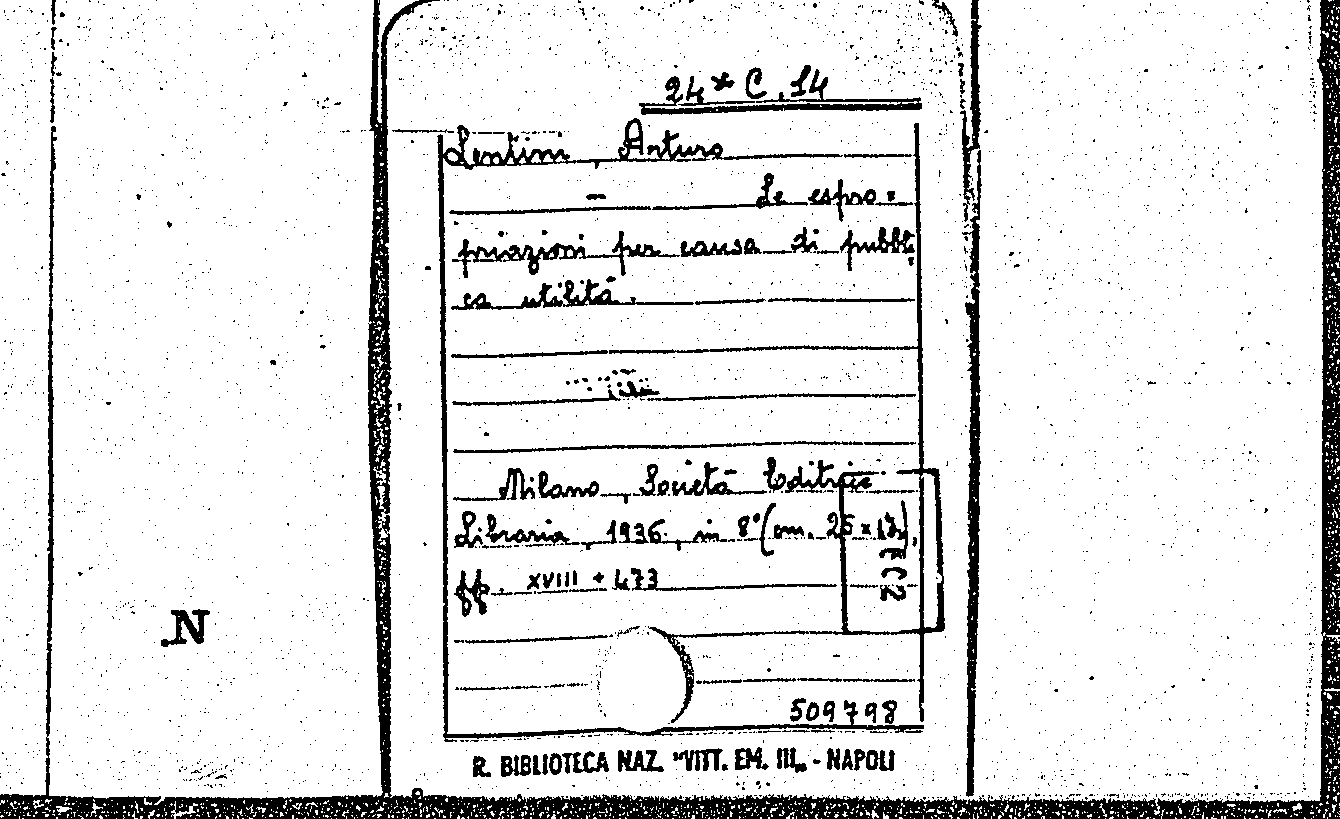 24* C.14
Lentini, Arturo
— Le espro=
priazioni per causa di pubbli
ca utilità.
Milano, Società Editrice
Libraria, 1936, in 8° (cm. 25 x 17),
ff. XVIII + 473
FC2
.N
509798
R. BIBLIOTECA NAZ. "VITT. EM. III„ - NAPOLI